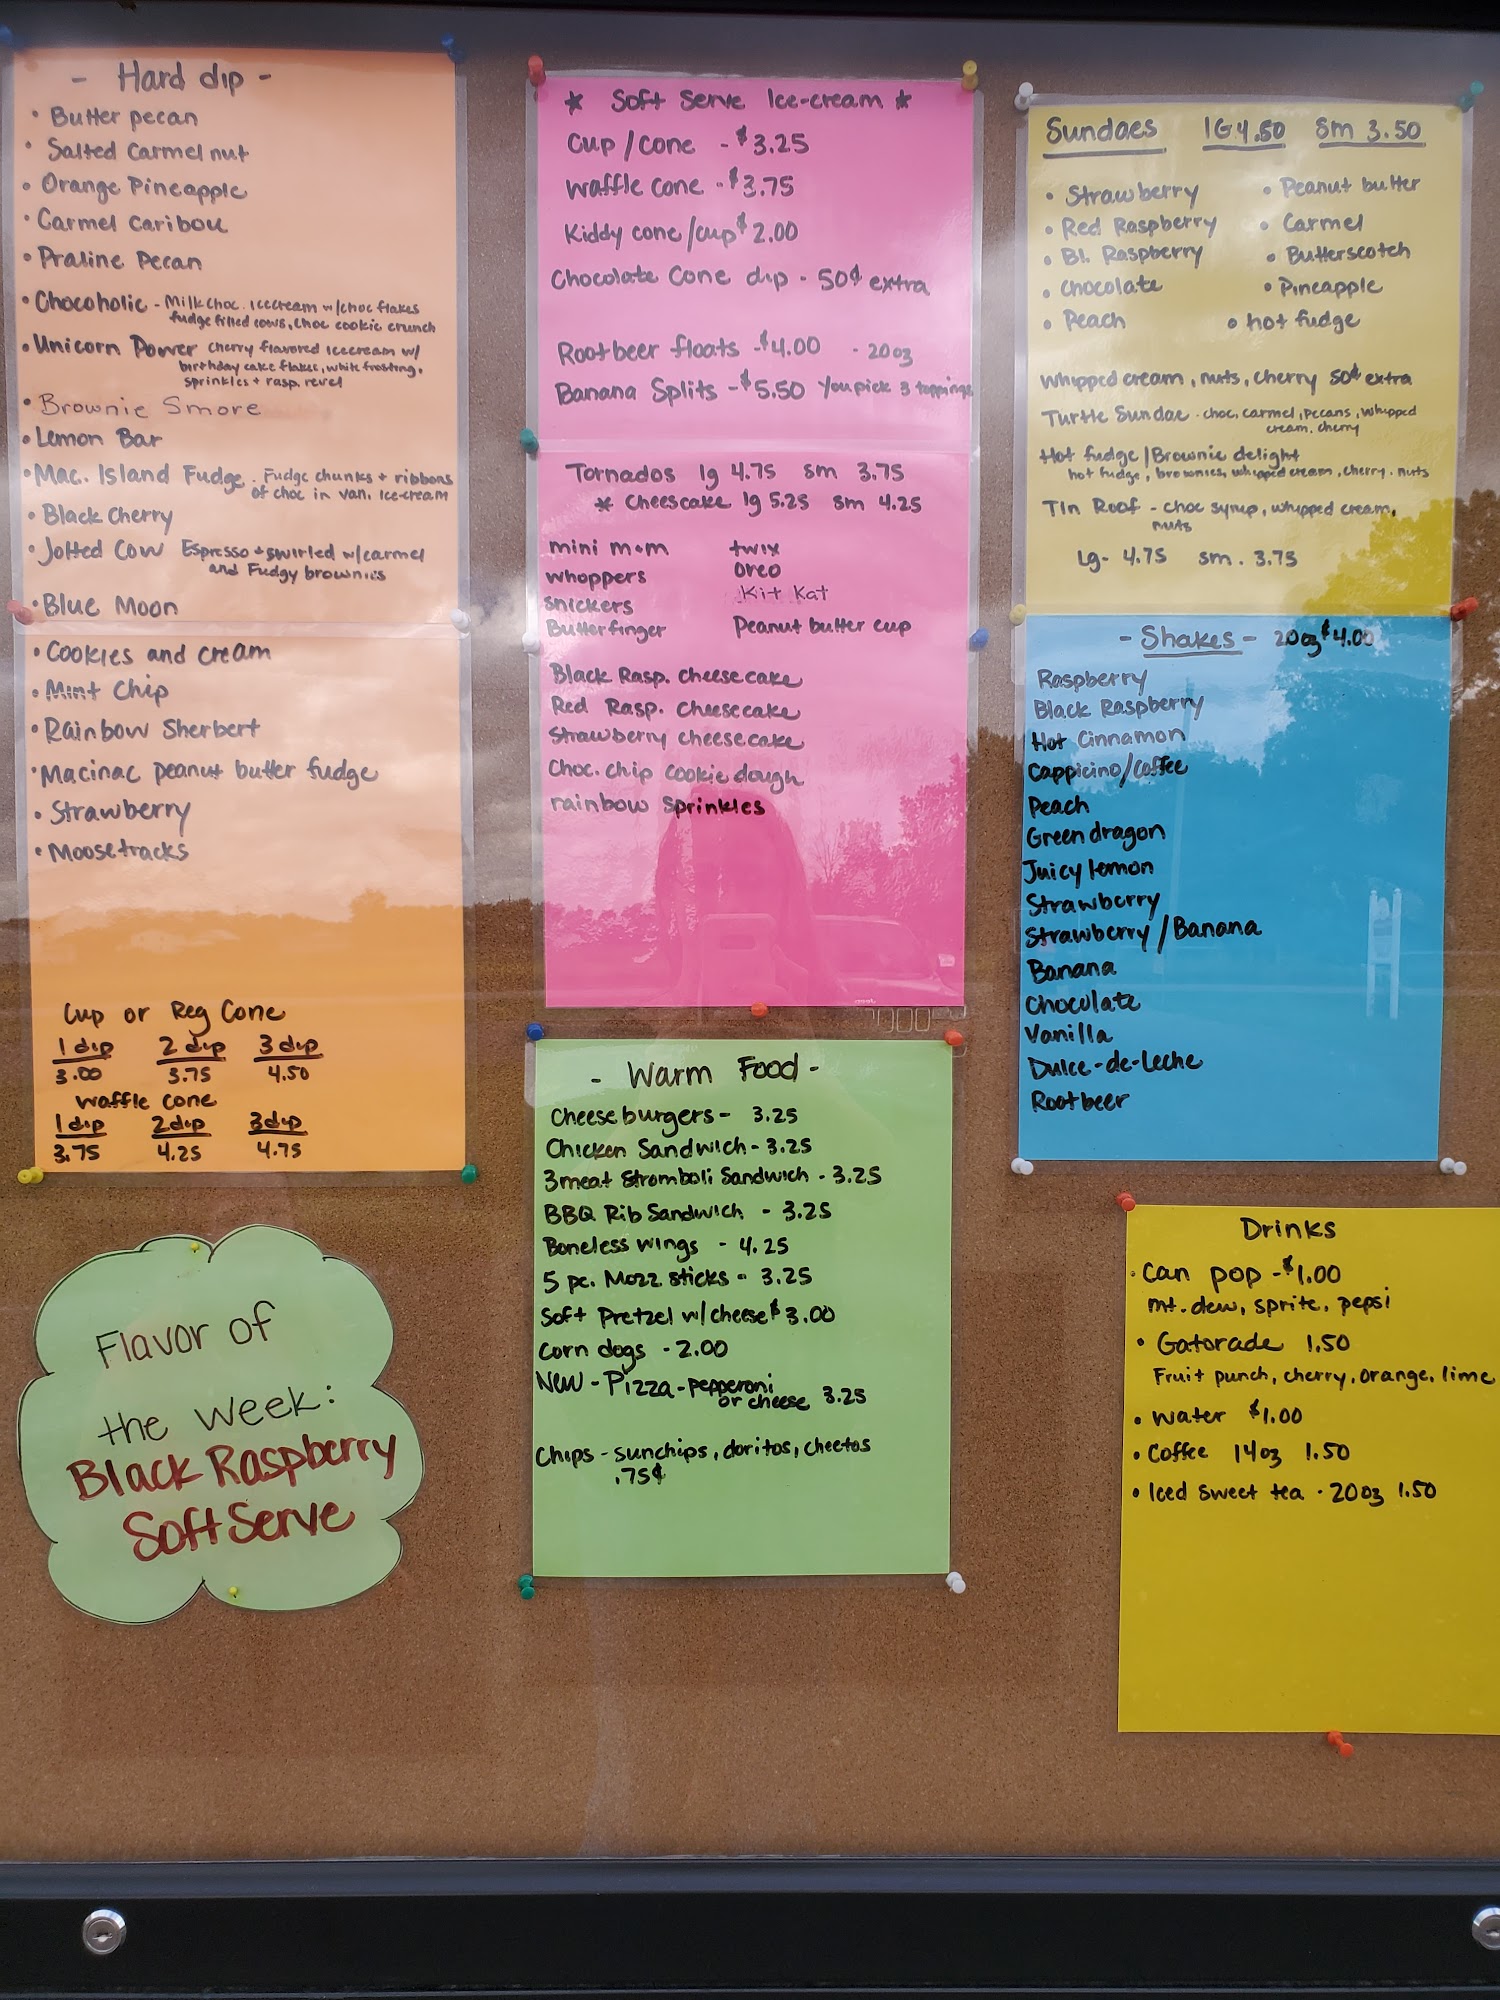 - Hard dip -
• Butter pecan
• Salted Carmel nut
• Orange Pineapple
• Carmel Caribou
• Praline Pecan
• Chocoholic - Milk choc. icecream w/choc flakes
fudge filled cows, choc cookie crunch
• Unicorn Power cherry flavored icecream w/
birthday cake flakes, white frosting,
sprinkles + rasp. revel
• Brownie Smore
• Lemon Bar
• Mac. Island Fudge. Fudge chunks + ribbons
of choc in van. Ice-cream
• Black Cherry
• Jolted Cow Espresso + swirled w/carmel
and Fudgy brownies
• Blue Moon
• Cookies and cream
• Mint Chip
• Rainbow Sherbert
• Macinac peanut butter fudge
• Strawberry
• Moosetracks
Cup or Reg Cone
1 dip 2 dip 3 dip
3.00 3.75 4.50
waffle cone
1 dip 2 dip 3 dip
3.75 4.25 4.75
Flavor of
the week:
Black Raspberry
Soft Serve
* Soft Serve Ice-cream *
Cup/cone - $3.25
waffle cone - $3.75
Kiddy cone/cup $2.00
Chocolate Cone dip - 50¢ extra
Rootbeer floats - $4.00 - 20oz
Banana Splits - $5.50 You pick 3 toppings
Tornados lg 4.75 sm 3.75
* Cheescake lg 5.25 sm 4.25
mini m+m twix
whoppers oreo
snickers Kit Kat
Butterfinger Peanut butter cup
Black Rasp. cheesecake
Red Rasp. cheesecake
Strawberry cheesecake
Choc. chip cookie dough
rainbow sprinkles
- Warm Food -
Cheeseburgers - 3.25
Chicken Sandwich - 3.25
3 meat Stromboli Sandwich - 3.25
BBQ Rib Sandwich - 3.25
Boneless wings - 4.25
5 pc. Mozz sticks - 3.25
Soft Pretzel w/cheese $3.00
Corn dogs - 2.00
New - Pizza - pepperoni
or cheese 3.25
Chips - sunchips, doritos, cheetos
.75¢
Sundaes lG 4.50 sm 3.50
• Strawberry • Peanut butter
• Red Raspberry • Carmel
• Bl. Raspberry • Butterscotch
• Chocolate • Pineapple
• Peach • hot fudge
Whipped cream, nuts, cherry 50¢ extra
Turtle Sundae - choc, carmel, pecans, whipped
cream, cherry
Hot fudge/Brownie delight
hot fudge, brownies, whipped cream, cherry, nuts
Tin Roof - choc syrup, whipped cream,
nuts
Lg - 4.75 sm. 3.75
- Shakes - 20oz $4.00
Raspberry
Black Raspberry
Hot Cinnamon
Cappicino/Coffee
Peach
Green dragon
Juicy lemon
Strawberry
Strawberry/Banana
Banana
Chocolate
Vanilla
Dulce-de-Leche
Rootbeer
Drinks
• Can pop - $1.00
mt. dew, sprite, pepsi
• Gatorade 1.50
Fruit punch, cherry, orange, lime
• water $1.00
• Coffee 14oz 1.50
• Iced sweet tea · 20oz 1.50